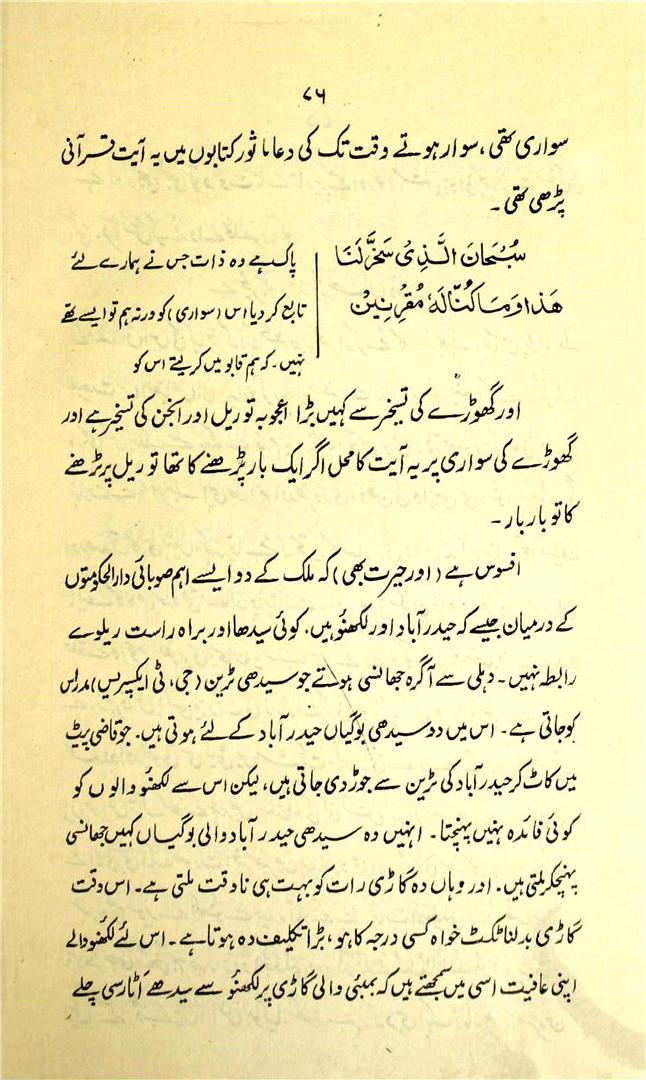 ۷۶
سواری تھی، سوار ہوتے وقت تک کی دعا ماثور کتابوں میں یہ آیت قرآنی
پڑھی تھی۔
سُبْحَانَ الَّذِیْ سَخَّرَلَنَا
هَذَا وَمَا کُنَّا لَهٗ مُقْرِنِیْنَ
پاک ہے وہ ذات جس نے ہمارے لئے
تابع کر دیا اس (سواری) کو ورنہ ہم تو ایسے تھے
نہیں۔ کہ ہم قابو میں کر لیتے اس کو
اور گھوڑے کی تسخیر سے کہیں بڑا اعجوبہ تو ریل اور انجن کی تسخیر ہے اور
گھوڑے کی سواری پر یہ آیت کا محل اگر ایک بار پڑھنے کا تھا تو ریل پر پڑھنے
کا تو بار بار۔
افسوس ہے (اور حیرت بھی) کہ ملک کے دو ایسے اہم صوبائی دارالحکومتوں
کے درمیان جیسے کہ حیدرآباد اور لکھنؤ ہیں، کوئی سیدھا اور براہ راست ریلوے
رابطہ نہیں۔ دہلی سے آگرہ جھانسی ہوتے جو سیدھی ٹرین (جی، ٹی ایکسپریس) مدراس
کو جاتی ہے۔ اس میں دو سیدھی بوگیاں حیدرآباد کے لئے ہوتی ہیں۔ جو قاضی پیٹ
میں کاٹ کر حیدرآباد کی ٹرین سے جوڑ دی جاتی ہیں، لیکن اس سے لکھنؤ والوں کو
کوئی فائدہ نہیں پہنچتا۔ انہیں وہ سیدھی حیدرآباد والی بوگیاں کہیں جھانسی
پہنچکر ملتی ہیں۔ اور وہاں وہ گاڑی رات کو بہت ہی ناوقت ملتی ہے۔ اس وقت
گاڑی بدلنا ٹکٹ خواہ کسی درجہ کا ہو، بڑا تکلیف دہ ہوتا ہے۔ اس لئے لکھنؤ والے
اپنی عافیت اسی میں سمجھتے ہیں کہ بمبئی والی گاڑی پر لکھنؤ سے سیدھے اٹارسی چلے